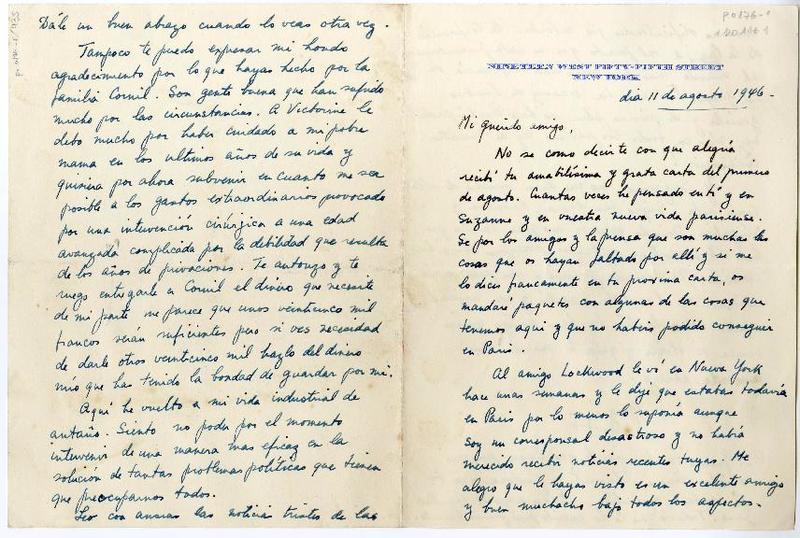 P0176-1
NINETEEN WEST FIFTY-FIFTH STREET
NEW YORK
dia 11 de agosto 1946-
Mi querido amigo,
No se como decirte con que alegria
recibí tu amabilísima y grata carta del primero
de agosto. Cuantas veces he pensado en tí y en
Suzanne y en vuestra nueva vida parisiense.
Se por los amigos y la prensa que son muchas las
cosas que os hayan faltado por allí y si me
lo dices francamente en tu proxima carta, os
mandaré paquetes con algunas de las cosas que
tenemos aqui y que no habéis podido conseguir
en Paris.
Al amigo Lockwood le ví en Nueva York
hace unas semanas y le dije que estabas todavía
en Paris por lo menos lo suponía aunque
soy un corresponsal desastroso y no había
merecido recibir noticias recientes tuyas. Me
alegro que le hayas visto es un excelente amigo
y buen muchacho bajo todos los aspectos.
Dále un buen abrazo cuando lo veas otra vez.
Tampoco te puedo expresar mi hondo
agradecimiento por lo que hayas hecho por la
familia Cornil. Son gente buena que han sufrido
mucho por las circunstancias. A Victorine le
debo mucho por haber cuidado a mi pobre
mama en los ultimos años de su vida y
quisiera por ahora subvenir en cuanto me sea
posible a los gastos extraordinarios provocado
por una intervención cirúrgica a una edad
avanzada complicada por la debilidad que resulta
de los años de privaciones. Te autorizo y te
ruego entregarle a Cornil el dinero que necesite
de mi parte me parece que unos veinticinco mil
francos serán suficientes pero si ves necesidad
de darle otros veinticinco mil hazlo del dinero
mío que has tenido la bondad de guardar por mi.
Aquí he vuelto a mi vida industrial de
antaño. Siento no poder por el momento
intervenir de una manera mas eficaz en la
solución de tantas problemas políticas que tienen
que preocuparnos todos.
Leo con ansias las noticias tristes de las